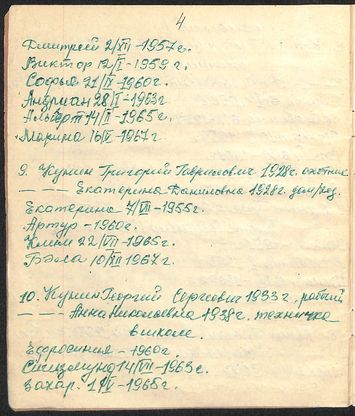 4
Дмитрий 2/XII-1957г.
Виктор 12/I-1959г.
Софья 21/IX-1960г.
Андриан 28/I-1963г.
Альберт 14/II-1965г.
Марина 16/V-1967г.
9. Кукин Григорий Гаврилович 1928г. охотник
— — — Екатерина Даниловна 1928г. дом/хоз.
Екатерина 7/VII-1955г.
Артур -1960г.
Клим 22/VII-1965г.
Бэла 10/XII 1967г.
10. Кукин Георгий Сергеевич 1933г., рабочий
— — — Анна Николаевна 1938г. техничка
в школе.
Ефросиния -1960г.
Сигизмунд 14/VII-1963г.
Захар. 1/V-1965г.